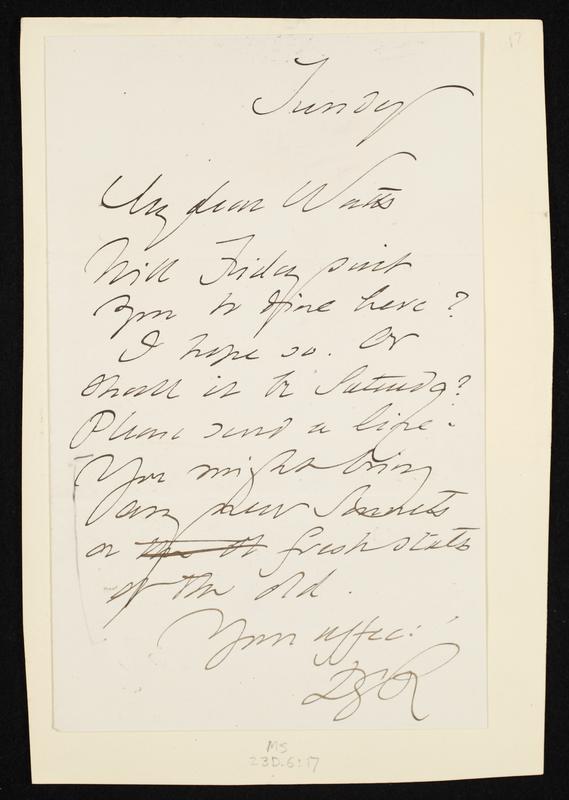 17
Sunday
My dear Watts
Will Friday suit
you to dine here?
I hope so. Or
shall it be Saturday?
Please send a line.
You might bring
any new Sonnets
or fresh states
of the old.
Your affec:
DGR
MS
23D.6:17